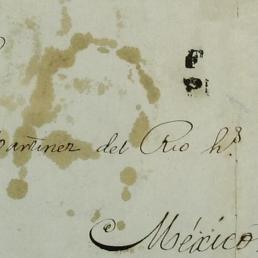 Martinez del Rio hs
Mexico